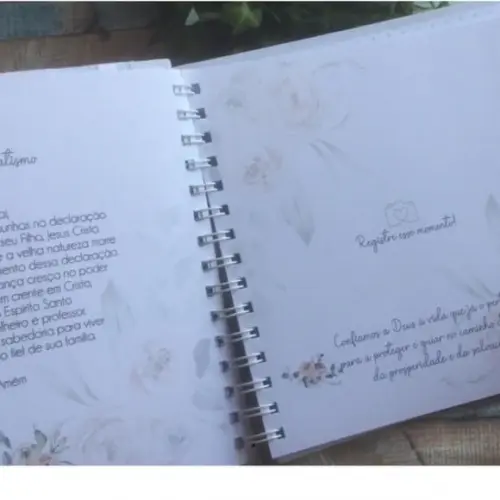 atismo
unhas na declaração
seu Filho, Jesus Cristo
e a velha natureza morre
mento dessa declaração.
ança cresça no poder
m crente em Cristo,
Espírito Santo
lheiro e professor,
sabedoria para viver
o fiel de sua família.
Amém
Registre esse momento!
Confiamos a Deus a vida que já o
para a proteger e guiar no caminho
da prosperidade e da